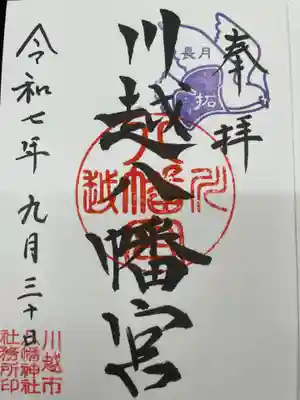 奉拝
長月
川越八幡宮
令和七年九月三十日
川越市
八幡神社
社務所印